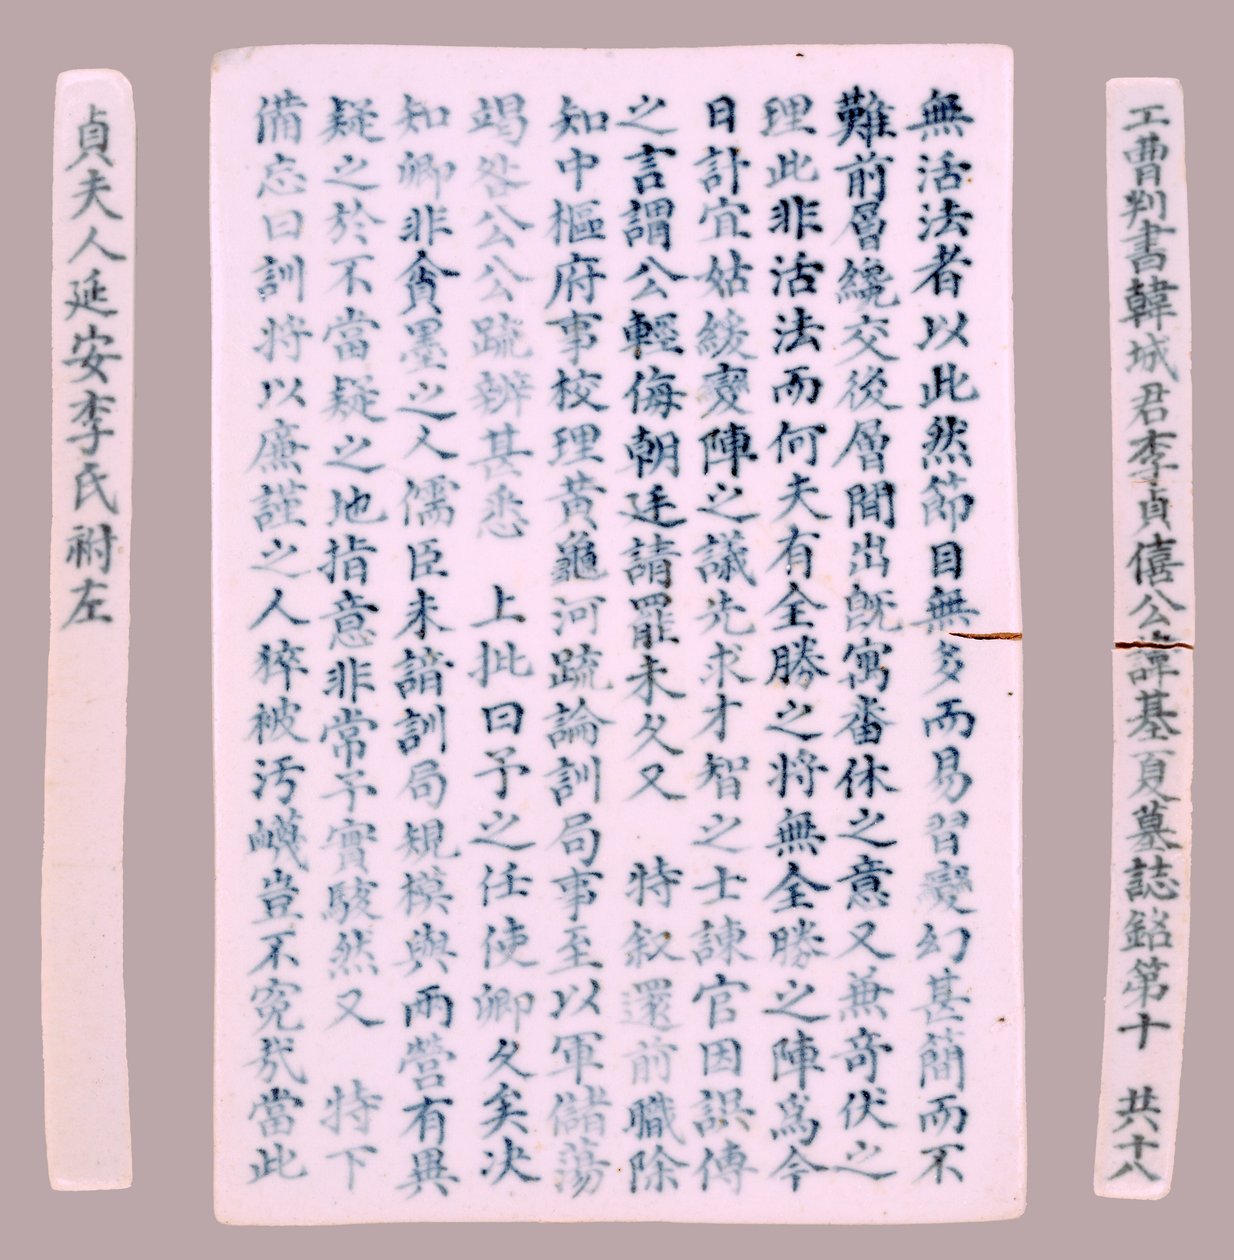 工曹判書韓城君李貞僖公諱基夏墓誌銘第十 共十八
無活法者以此然節目無多而易習變幻甚簡而不
難前層纔交後層間出旣寓番休之意又兼奇伏之
理此非活法而何夫有全勝之將無全勝之陣爲今
日計宜姑緩變陣之議先求才智之士諫官因誤傳
之言謂公輕侮朝廷請罷未久又 特敘還前職除
知中樞府事校理黃龜河疏論訓局事至以軍儲蕩
竭咎公公疏辨甚悉 上批曰予之任使卿久矣決
知卿非貪墨之人儒臣未諳訓局規模與兩營有異
疑之於不當疑之地指意非常予實駭然又 特下
備忘曰訓將以廉謹之人猝被汚衊豈不冤哉當此
貞夫人延安李氏祔左